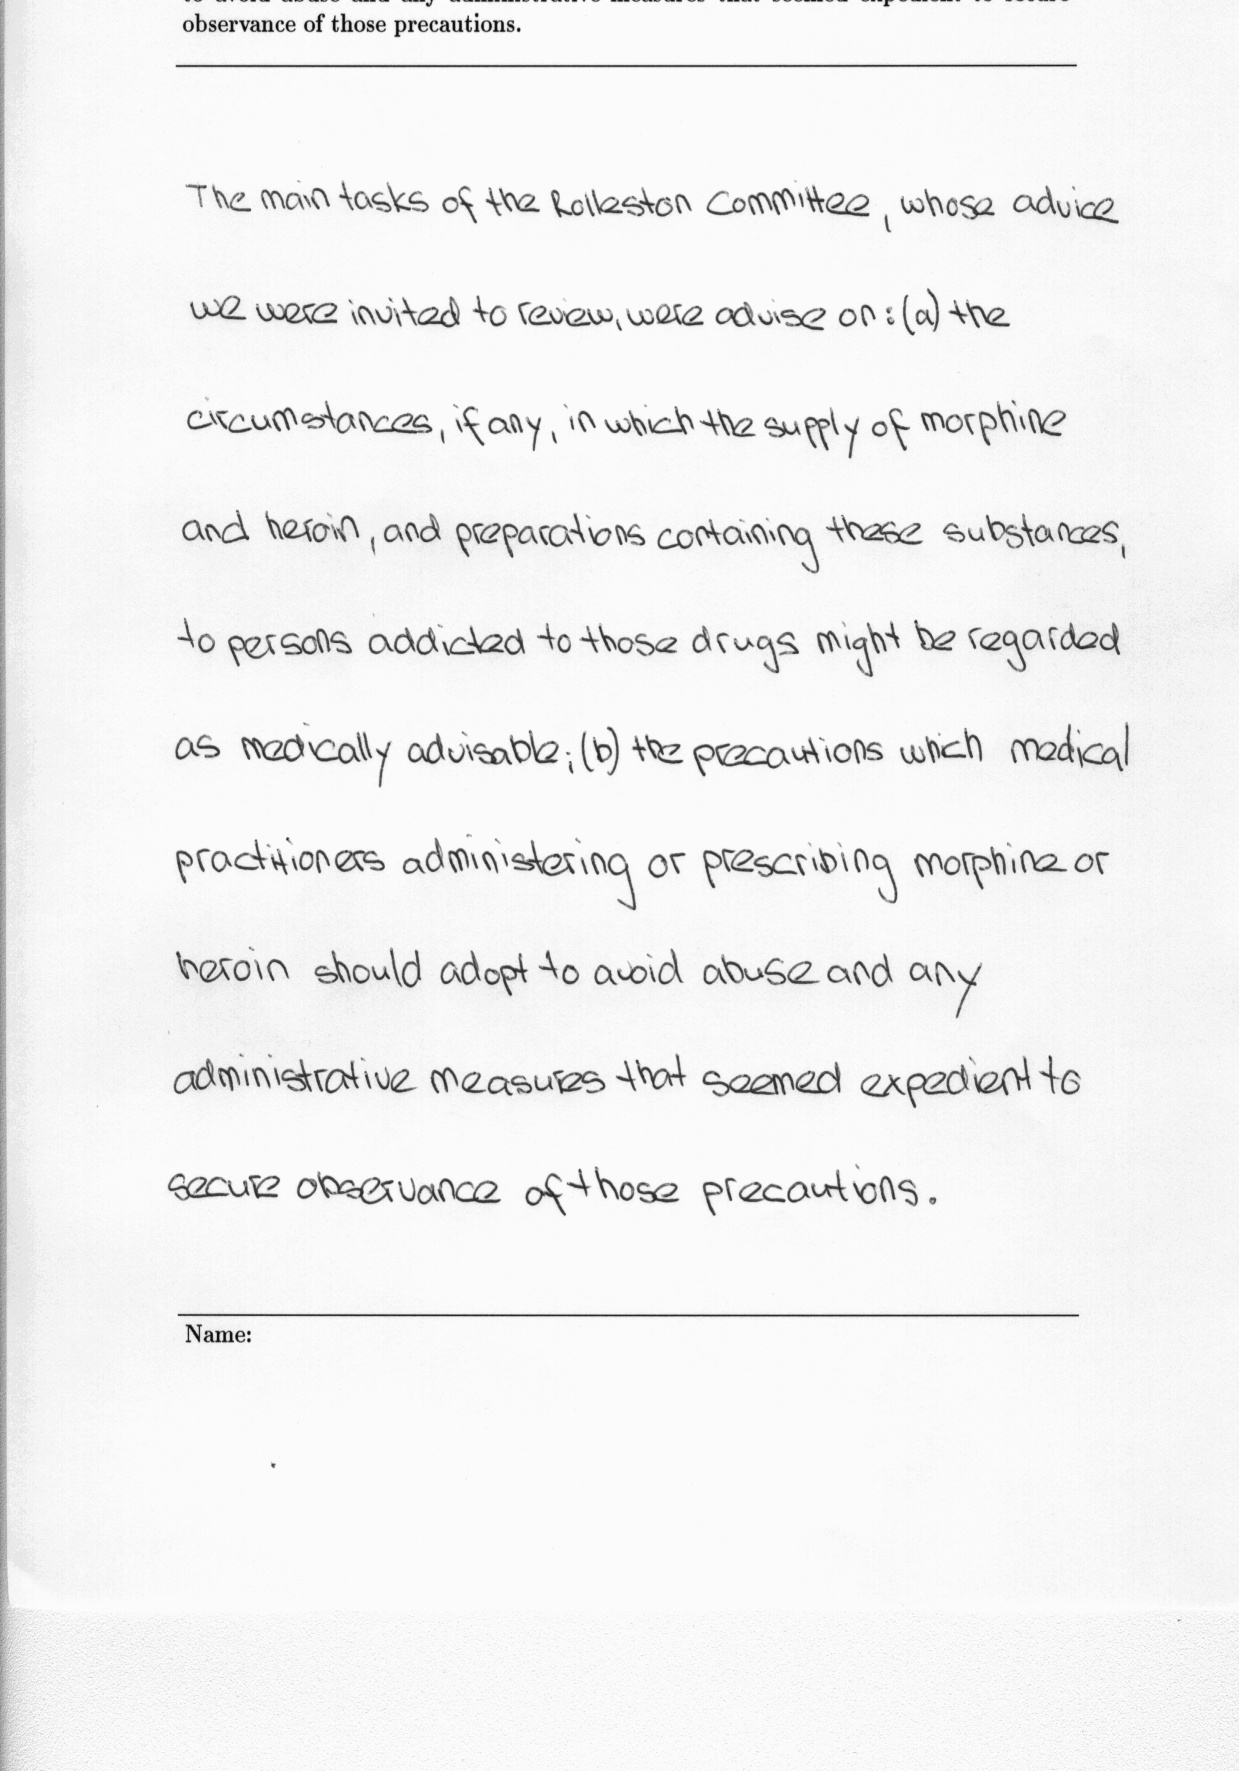 to avoid abuse and any administrative measures that seemed expedient to secure
observance of those precautions.
The main tasks of the Rolleston Committee, whose advice
we were invited to review, were advise on: (a) the
circumstances, if any, in which the supply of morphine
and heroin, and preparations containing these substances,
to persons addicted to those drugs might be regarded
as medically advisable; (b) the precautions which medical
practitioners administering or prescribing morphine or
heroin should adopt to avoid abuse and any
administrative measures that seemed expedient to
secure observance of those precautions.
Name: